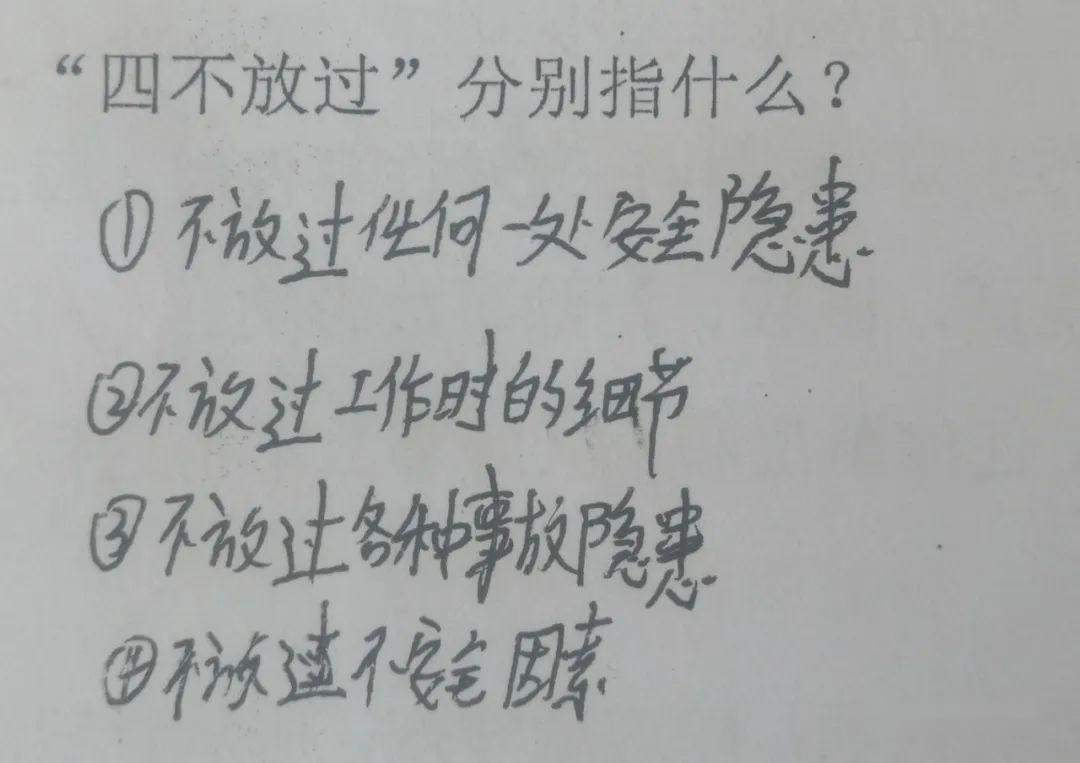 “四不放过”分别指什么？
①不放过任何一处安全隐患
②不放过工作时的细节
③不放过各种事故隐患
④不放过不安全因素